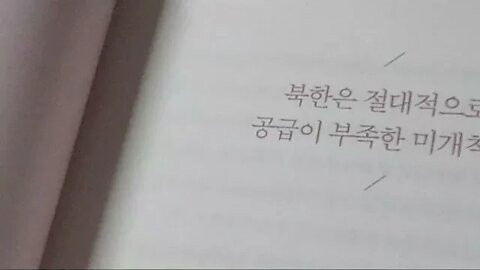 북한은 절대적으로
공급이 부족한 미개척